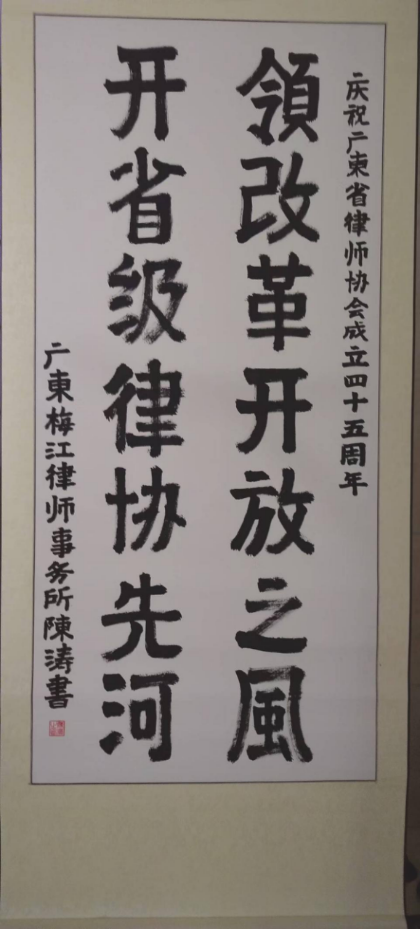 庆祝广東省律师协会成立四十五周年
領改革开放之風
开省级律协先河
广東梅江律师事务所陳涛書